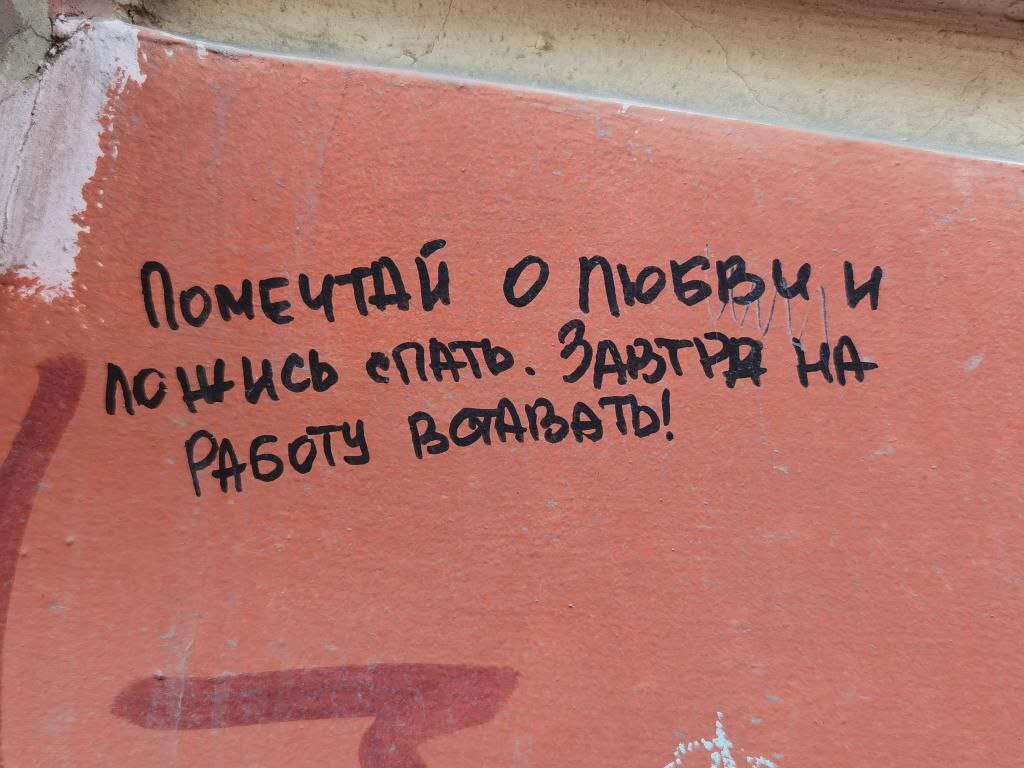 Помечтай о любви и
ложись спать. Завтра на
работу вставать!